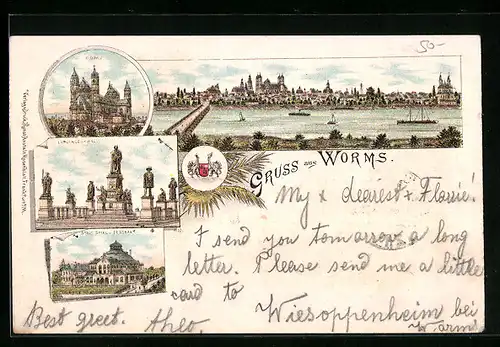 50-
DOM
LUTHERDENKMAL
GRUSS aus WORMS.
My x dearest x Florrie!
I send you tomorrow a long
letter. Please send me a little
card to Wiesoppenheim bei
Worms
Best greet. Theo.